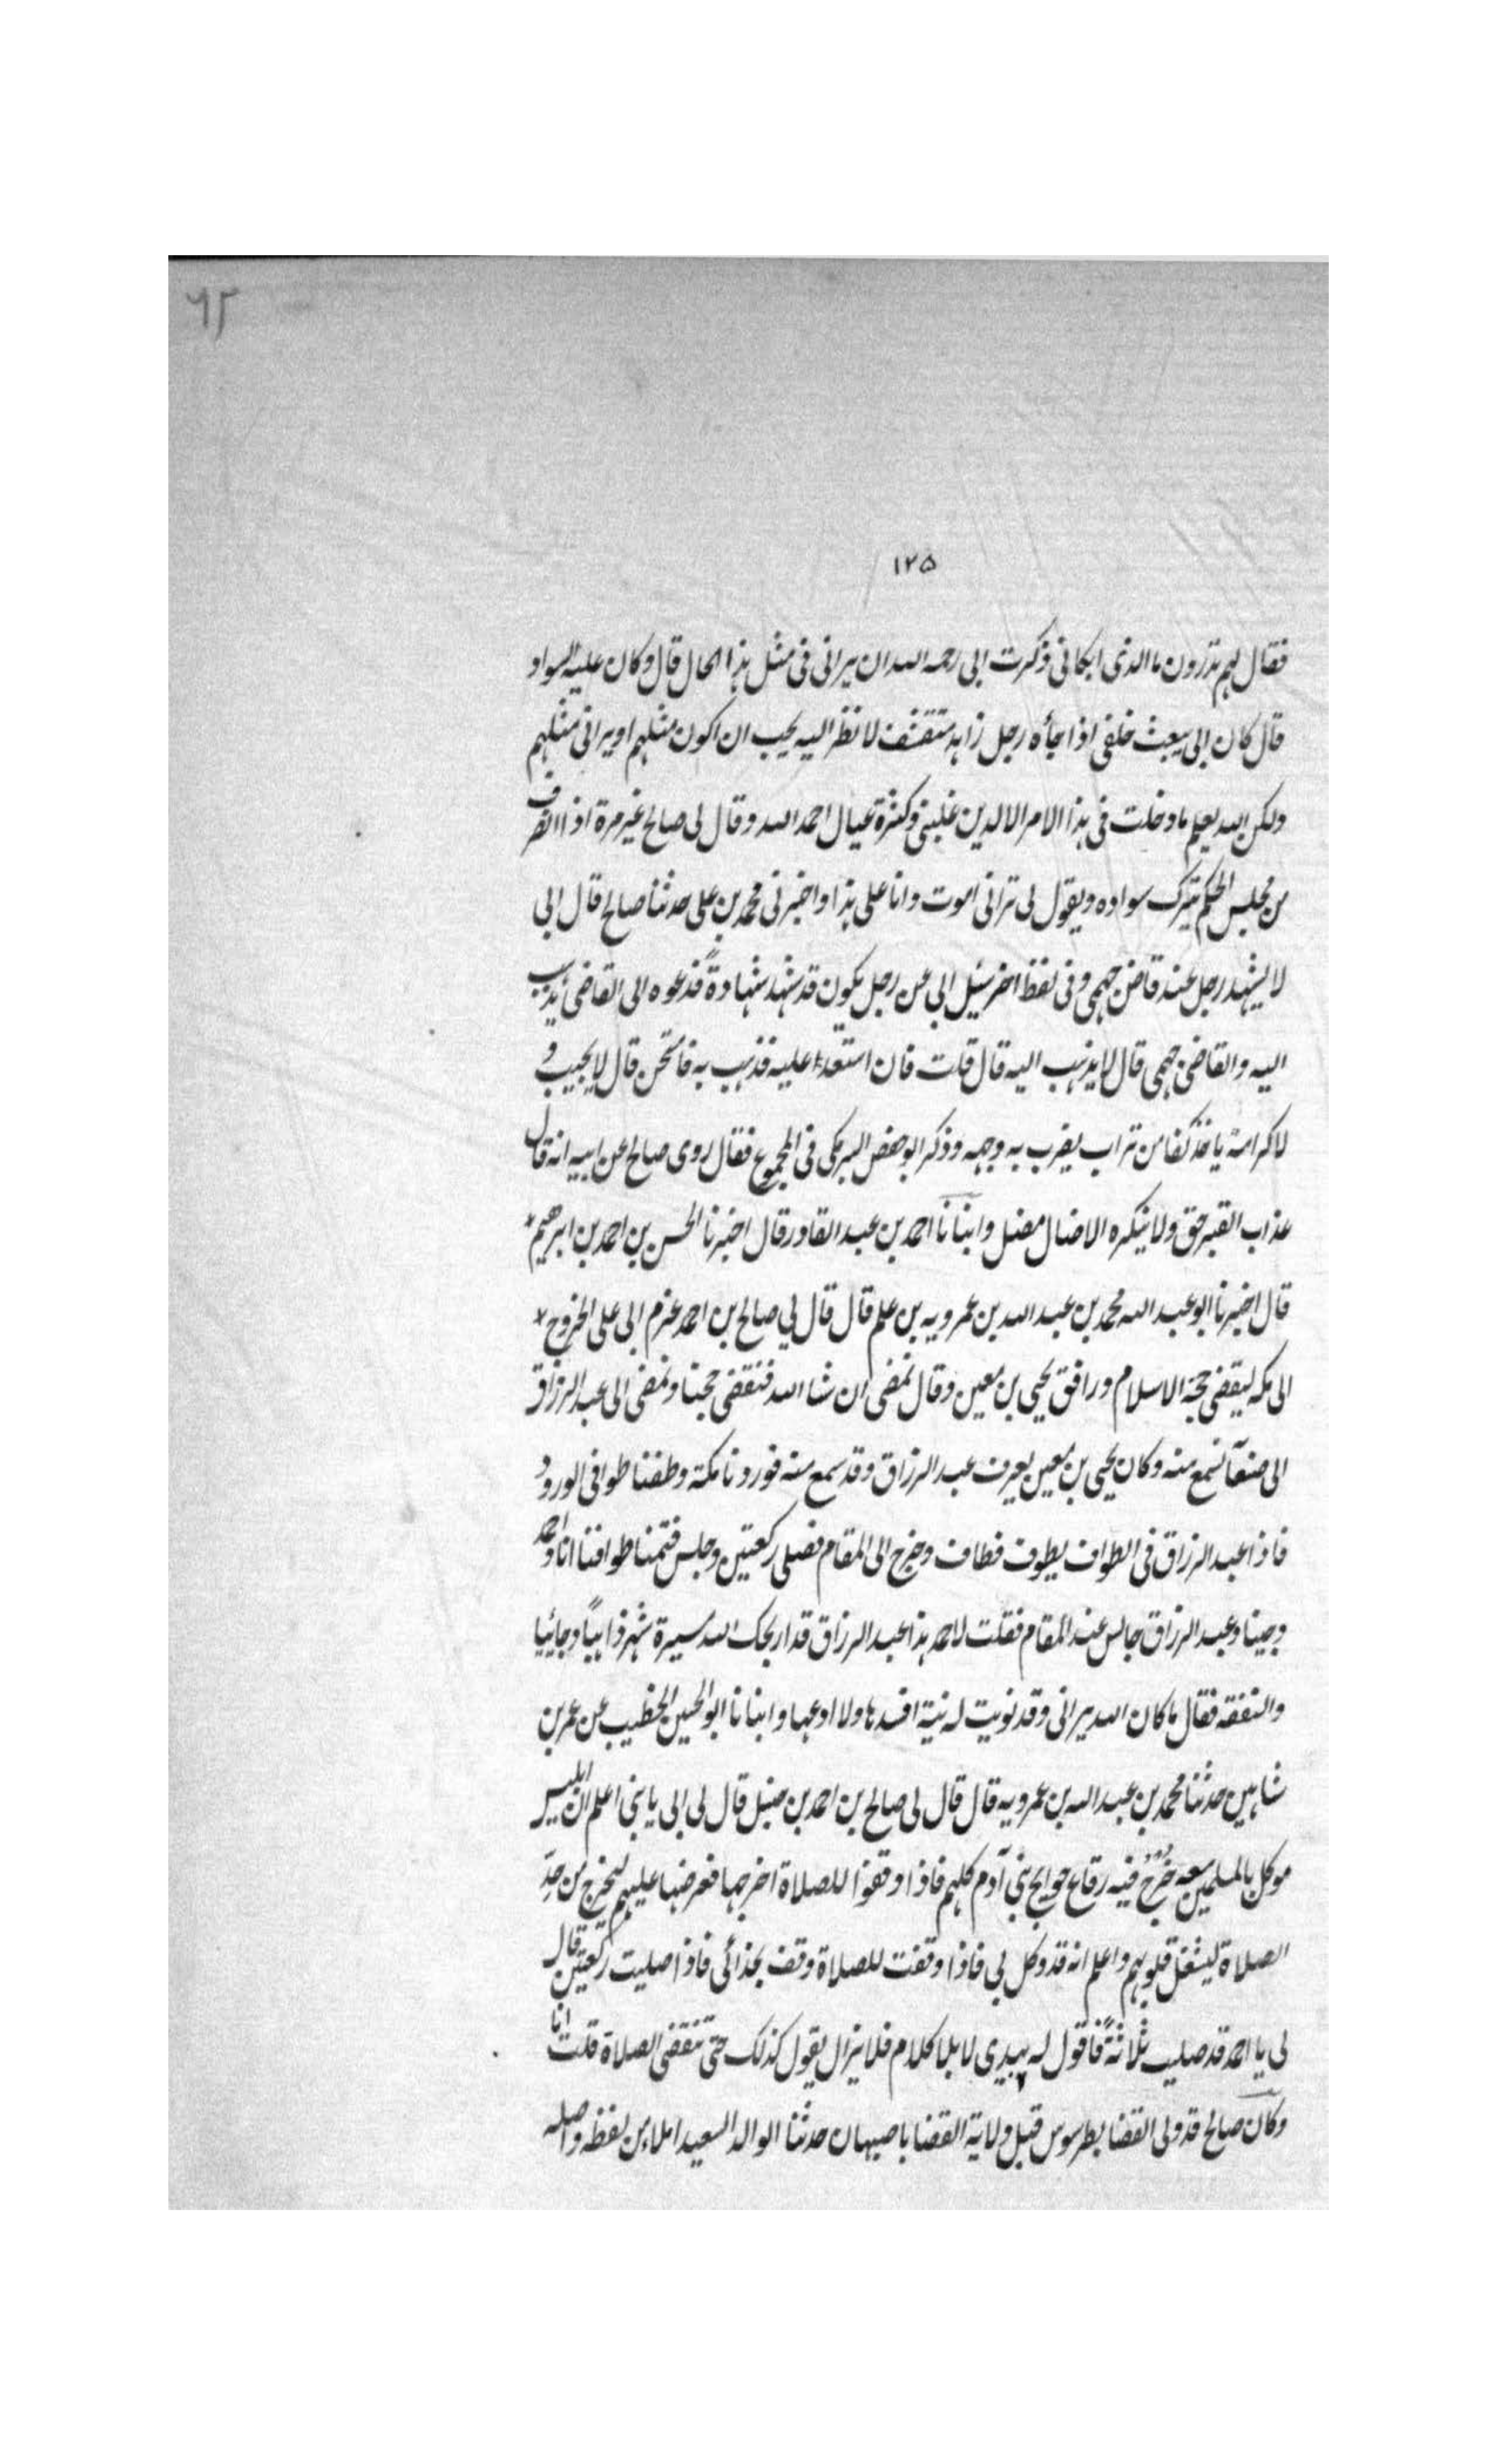 ٦٢
١٢٥
فقال لهم تدرون ما الذى ابكانى ذكرت ابى رحمه الله ان يرانى فى مثل هذا الحال قال وكان عليه السواد
قال كان ابى يبعث خلفى اذا جأه رجل زاهد متقشف لا نظر اليه يحب ان اكون مثلهم او يرانى مثلهم
ولكن الله يعلم ما دخلت فى هذا الامر الا لدين غلبنى وكثرة عيال احمد الله وقال لى صالح غير مرة اذا انصرف
من مجلس الحكم يترك سواده ويقول لى ترانى اموت وانا على هذا واخبرنى محمد بن على حدثنا صالح قال ابى
لا يشهد رجل عند قاض جهمى وفى لفظ اخر سئل ابى عن رجل يكون قد شهد شهادةً فدعوه الى القاضى يذهب
اليه والقاضى جهمى قال لا يذهب اليه قال قلت فان استعدا عليه فذهب به فامتحن قال لا يجيب و
لا كرامة ياخذ كفا من تراب يضرب به وجهه وذكر ابو حفص البرمكى فى المجموع فقال روى صالح عن ابيه انه قال
عذاب القبر حق ولا ينكره الا ضال مضل وانبانا احمد بن عبد القادر قال اخبرنا الحسن بن احمد بن ابرهيم
قال اخبرنا ابو عبد الله محمد بن عبد الله بن عمرويه بن علم قال قال لي صالح بن احمد عزم ابى على الخروج
الى مكه ليقضى حجة الاسلام ورافق يحيى بن معين وقال نمضى ان شا الله فنقضى حجتنا ونمضى الى عبد الرزاق
الى صنعآ نسمع منه وكان يحيى بن معين يعرف عبد الرزاق وقد سمع منه فوردنا مكة وطفنا طوافى الورود
فاذا عبد الرزاق فى الطواف يطوف فطاف وخرج الى المقام فصلى ركعتين وجلس فتممنا طوافنا انا واحمد
وجينا وعبد الرزاق جالس عند المقام فقلت لاحمد هذا عبد الرزاق قد اربحك الله مسيرة شهر ذاهباً وجائيا
والنفقة فقال ما كان الله يرانى وقد نويت له نية افسدها ولا ادعها وانبانا ابو الحسين الخطيب عن عمر بن
شاهين حدثنا محمد بن عبد الله بن عمرويه قال قال لى صالح بن احمد بن حنبل قال لى ابى يا بنى اعلم ان ابليس
موكل بالمسلمين معه خُرج فيه رقاع حوايج بنى آدم كلهم فاذا وقفوا للصلاة اخرجها فعرضها عليهم ليخرج من حدّ
الصلاة ليشغل قلوبهم واعلم انه قد وكل بى فاذا وقفت للصلاة وقف بحذائى فاذا صليت ركعتين قال
لى يا احمد قد صليت ثلاثةً فاقول له بيدى لا بلا كلام فلا يزال يقول كذلك حتى تنقضى الصلاة قلت انا
وكان صالح قد ولى القضا بطرسوس قبل ولاية القضا باصبهان حدثنا الوالد السعيد املاء من لفظه واصله